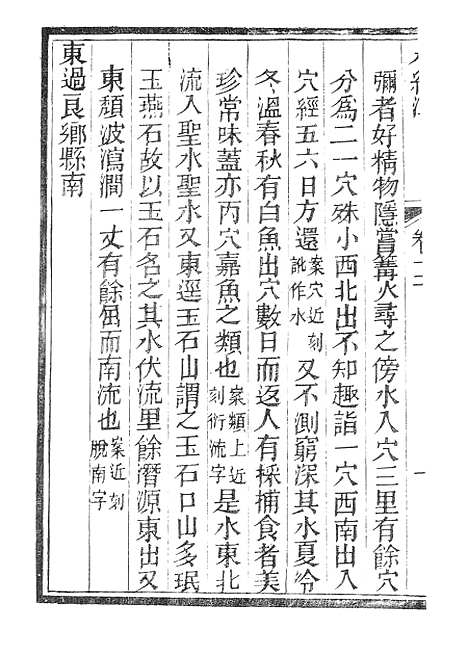 水經注
卷十二
一
彌者好精物隱嘗篝火尋之傍水入穴三里有餘穴
分爲二一穴殊小西北出不知趣詣一穴西南出入
穴經五六日方還案穴近刻訛作水又不測窮深其水夏冷
冬溫春秋有白魚出穴數日而返人有採捕食者美
珍常味蓋亦丙穴嘉魚之類也案類上近刻衍流字是水東北
流入聖水聖水又東逕玉石山謂之玉石口山多珉
玉燕石故以玉石名之其水伏流里餘潛源東出又
東頹波瀉澗一丈有餘屈而南流也案近刻脫南字
東過良鄉縣南